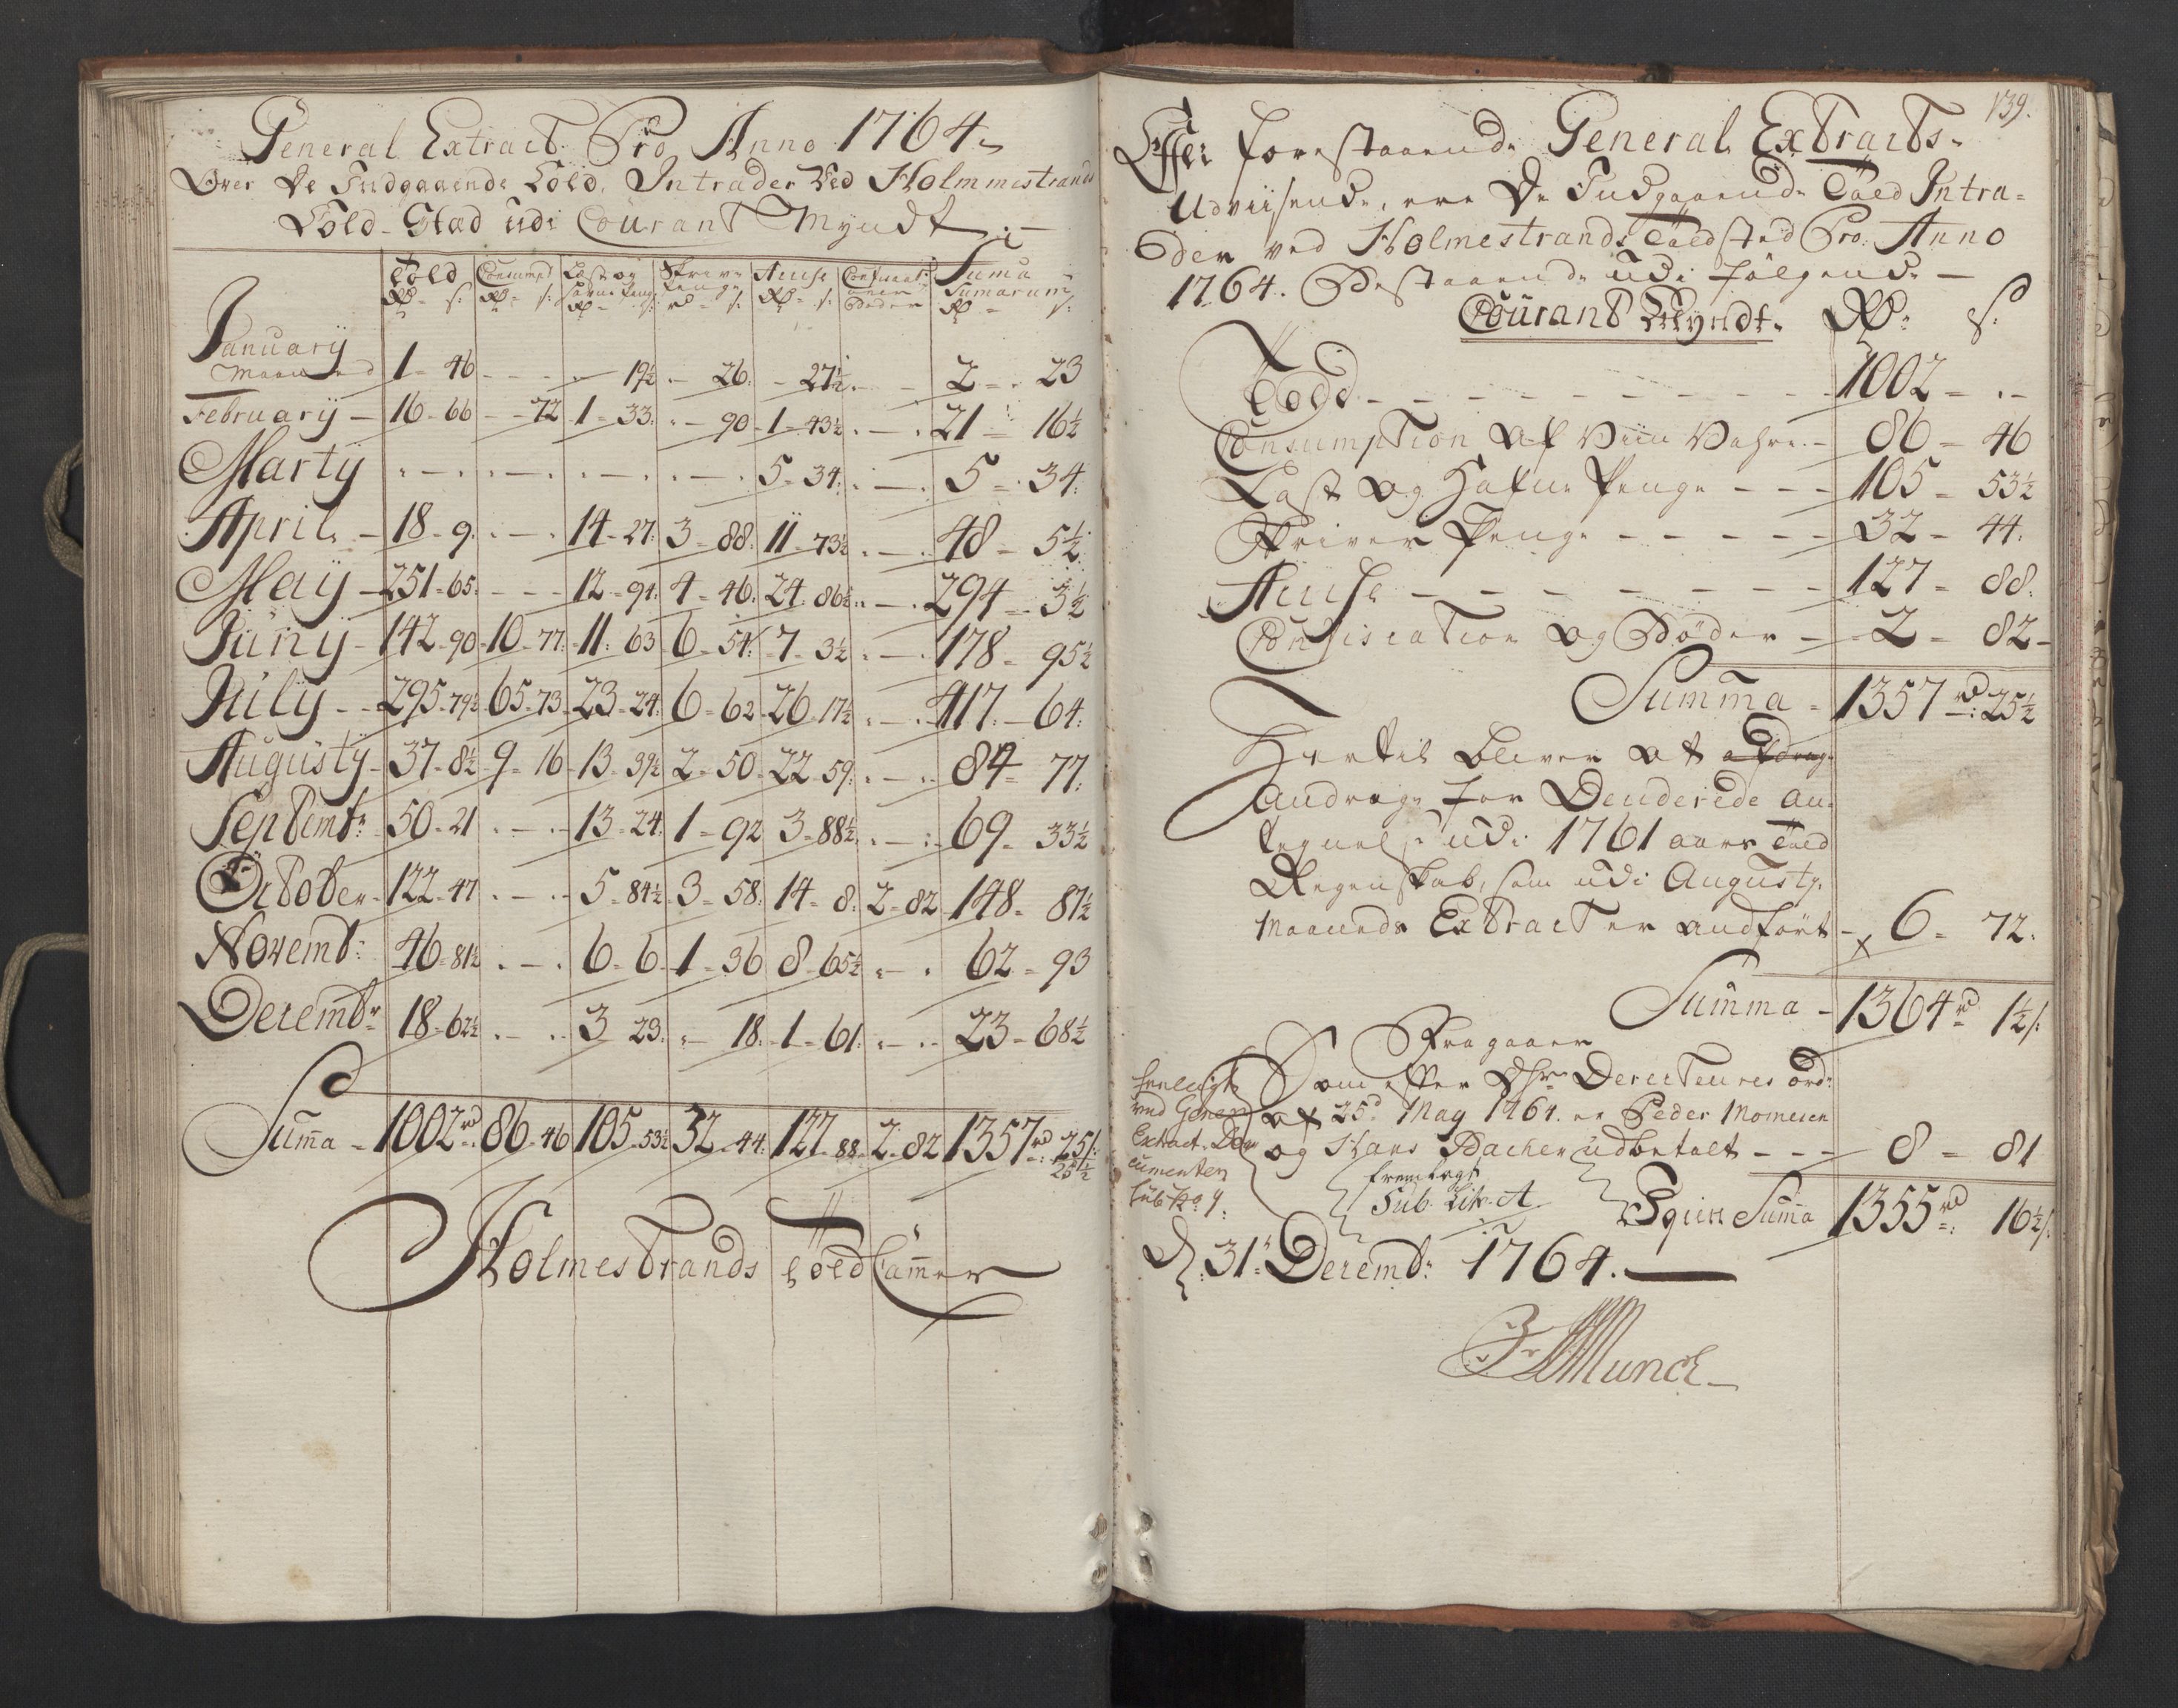 General Extract Pro Anno 1764
Over De Indgaaende Told, Intrader Ved Holmmestrands
Told-Stæd udi Courant Myndt
Told Consumpt Last og Skriver Acuse Confiscati Suma
Hafne Penge Penge oner Sumarum
Rd s: Rd s: Rd s: rd s: Rd s: Bøder Rd s:
January
Maaned 1 - 46 - - 19½ - 26. - 27½ - 2 - 23
February - 16 - 66 - - 72 1 - 33. - 90 - 1 - 43½ . - . 21 - 16½
Martij . - . - . - . - . 5 - 34. . - . 5 - 34.
April - 18 - 9. . - . 14 - 27. 3 - 88. 11 - 73½ . - . 48 - 5½
Maij - 251 - 65. - - 12 - 91. 4 - 46. 24. 86½ . - . 294 - 3½
Junij - 142 - 90 - 10 - 77. 11. 63 6 - 54. 7 - 3½ . - . 178 - 95½
Julij - 295 - 79½ 65 - 73 - 23 - 24. 6 - 62 - 26 - 17½ . - . 417. - 64.
Augustij - 37 - 8½ 9 - 16 - 13 - 39½ 2 - 50 - 22 - 59. . - . 84 - 77.
Septembr: 50 - 21 . - . 13 - 24. 1 - 92 3 - 88½ . - . 69 - 33½
October - 122 - 47 . - . 5 - 84½ 3 - 58. 14 - 8. 2 - 82 148 - 87½
Novemb: 46 - 81½ . - . 6 - 6. 1 - 36 8 - 65½ . - . 62 - 93
Decembr 18 - 62½ . - . 3 23. . - 18. 1 - 61. . - . 23 - 68½
Suma - 1002 rd: 86 - 46 105 - 53½ 32 - 44. 127 - 88 - 2 - 82 1357 rd: 25 s:
25½
Holmestrands Told Camer
139.
Efter forestaaende General Extracts
Udviisende, ere De Indgaaende Told Intra-
der ved Holmestrands Toldsted Pro: Anno
1764. Bestaaende udi følgende -
Courant Myndt. Rd: s:
Told - - - 1002 - . -
Consumption af Viin Vahre - 86 - 46
Last og Hafne Penge - - - 105 - 53½
Skriver Penge - - - 32 - 44.
Acuse - - - 127 - 88.
Confiscation og Bøder - 2 - 82 -
Summa - 1357 rd: 25½
Hertil bliver at afdrage
andrage for Denderede an-
tegnelse udi 1761 aars Told
Regenskab, som udi Augusty
Maaneds Extract er andført - x 6 - 72.
Summa - 1364 rd 1½ s:
Fragaaer
Som efter Dhr Derecteures ord:
af 25d May 1764. er Peder Momesen
og Hans Bacher udbetalt - - - 8 - 81
fremlagt
Sub Lit: A
henlagt
ved General
Extract Do-
cumenten
sub No 4.
Igien Suma 1355 rd 16½ s:
D. 31t Decemb: 1764.
Munch